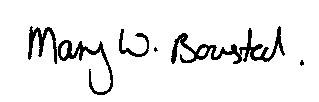 Mary W. Boustal.